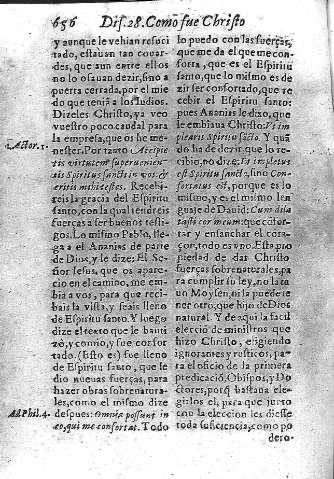 656 Dis. 28. Como fue Christo
y aunque le vehian resuci
tado, estauan tan couar-
des, que aun entre ellos
no lo osauan dezir, sino a
puerta cerrada, por el mie
do que tenia a los Iudios.
Dizeles Christo, ya veo
vuestro poco caudal para
la empresa, que os he me
nester: Por tanto Accipie
Actor. 1.
tis virtutem superuenien-
tis Spiritus sancti in vos, &
eritis mihi testes. Recebi-
reis la gracia del Espiritu
santo, con la qual tendreis
fuerças a ser buenos testi-
gos. Lo mismo Pablo, lle-
ga a el Ananias de parte
de Dios, y le dize: El Se-
ñor Iesus, que os apare-
cio en el camino, me em-
bia a vos, para que reci-
bais la vista, y seais lleno
de Espiritu santo. Y luego
dize el texto que le bauti
zò, y comio, y fue confor
tado. (Esto es) fue lleno
de Espiritu santo, que le
dio nueuas fuerças, para
hazer obras sobrenatura-
les, como el mismo dize
Ad Phil. 4.
despues: Omnia possum in
eo, qui me confortat. Todo
lo puedo con las fuerças,
que me da el que me con-
forta, que es el Espiritu
santo, que lo mismo es de
zir ser confortado, que re
cebir el Espiritu santo:
pues Ananias le dixo, que
le embiaua Christo: Et im
plearis Spiritu sancto. Y quã
do ha de dezir, que lo re-
cibio, no dize: Et impletus
est Spiritu sancto, sino Con-
fortatus est, porque es lo
mismo, y es el mismo len
guaje de Dauid: Cum dila
tasti cor meum: que confor
tar y ensanchar el coraçon,
todo es vno. Esta pro
piedad de dar Christo
fuerças sobrenaturales, pa
ra cumplir su ley, no la tu
uo Moysen, ni la puede te
ner otro, que hijo de Dios
natural. Y de aqui la facil
elecciõ de ministros que
hizo Christo, eligiendo
ignorantes y rusticos, pa-
ra el oficio de la primera
predicaciõ, Obispos, y Do
ctores, porq̃ bastaua ele-
girlos el, para que junto
con la eleccion les diesse
toda suficiencia, como po
dero-